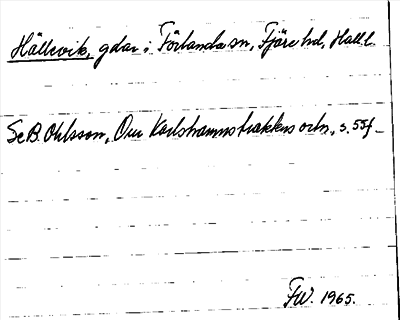 Hällevik, gdar i Förlanda sn, Fjäre hd, Hall l.
Se B. Ohlsson, Om Karlshamnstraktens ortn., s. 55f.
FW. 1965.